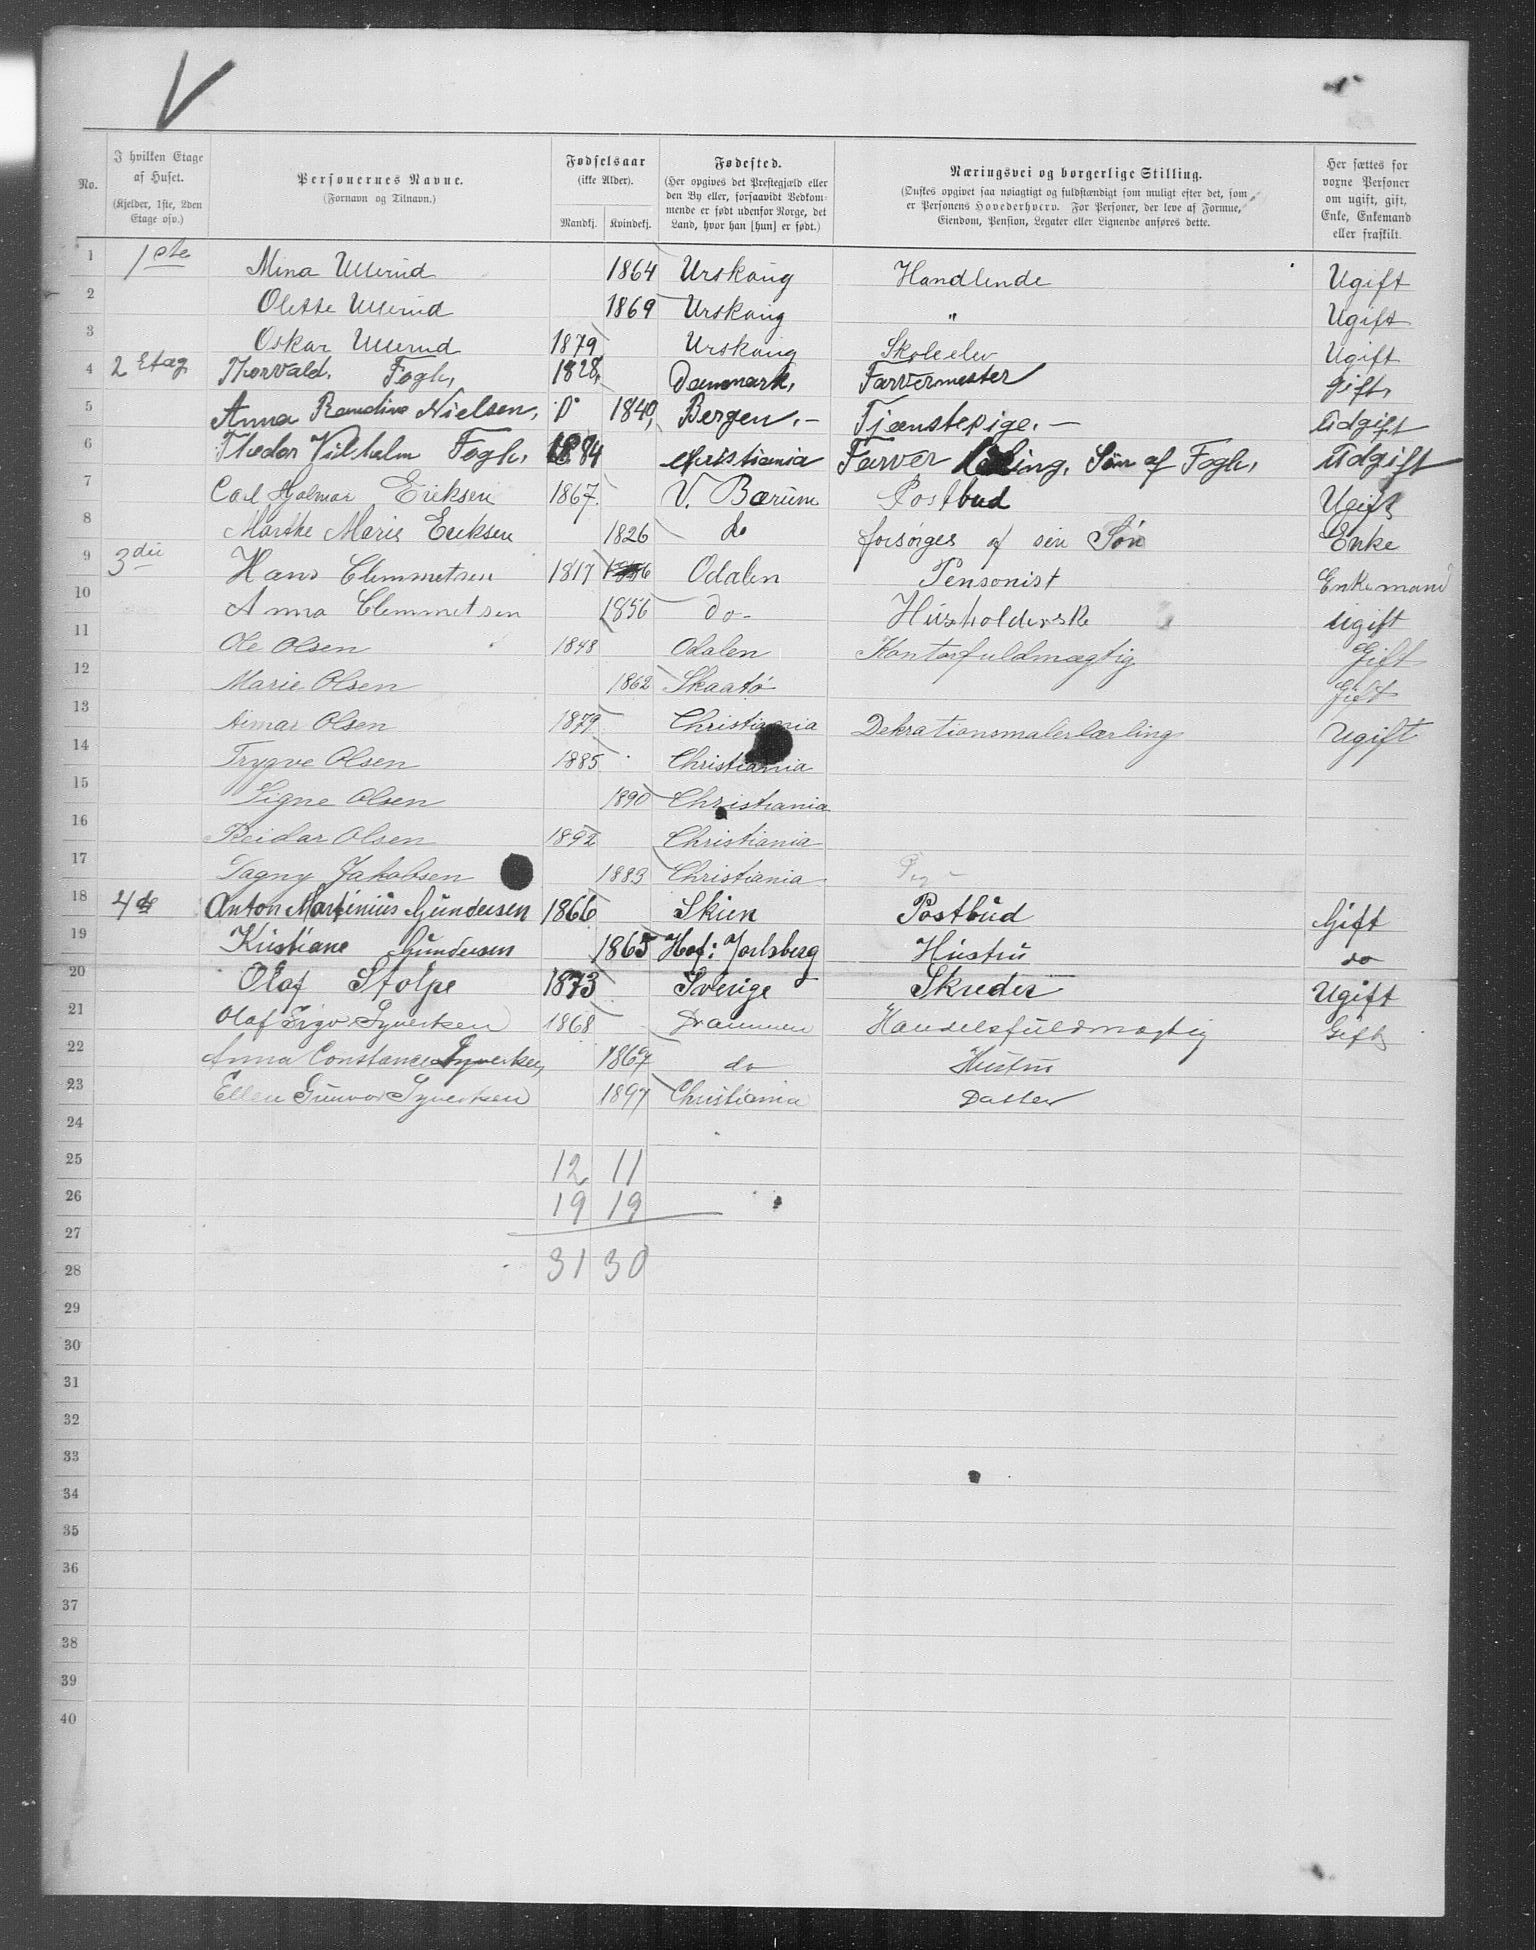 No. I hvilken Etage af Huset. (Kjelder, 1ste, 2den Etage osv.) Personernes Navne. (Fornavn og Tilnavn.) Fødselsaar (ikke Alder). Mandkj. Kvindekj. Fødested. (Her opgives det Prestegjæld eller den By eller, forsaavidt Vedkommende er født udenfor Norge, det Land, hvor han [hun] er født.) Næringsvei og borgerlige Stilling. (Ønskes opgivet saa nøiagtigt og fuldstændigt som muligt efter det, som er Personens Hovederhverv. For Personer, der leve af Formue, Eiendom, Pension, Legater eller Lignende anføres dette. Her sættes for voxne Personer om ugift, gift, Enke, Enkemand eller fraskilt.
1 1ste Mina Ullerud 1864 Urskoug Handlende Ugift
2 Olette Ullerud 1869 Urskoug " Ugift
3 Oskar Ullerud 1879 Urskoug Skoleelev Ugift
4 2 Etag Thorvald. Fogh, 1828, Danmark, Farvermester Gift,
5 Anna Randine Nielsen, 1840, Bergen. - Tjænstepige. - Udgift
6 Theodor Vilhelm Fogh, 1884 Christiania Farver Søn af Fogh, Udgift
7 Carl Hjalmar Eriksen 1867 V. Bærum Postbud Ugift
8 Marthe Marie Eriksen 1826 do forsørges af sin Søn Enke
9 3die Hans Clemmetsen 1817 Odalen Pensonist Enkemand
10 Anna Clemmetsen 1856 do- Husholderske Ugift
11 Ole Olsen 1848 Odalen Kontorfuldmægtig Gift
12 Marie Olsen 1862 Skaatø Gift
13 Olsen 1879 Christiania Dekrationsmalerlærling Ugift
14 Trygve Olsen 1885 Christiania
15 Signe Olsen 1890 Christiania
16 Reidar Olsen 1892 Christiania
17 Dagny Jakobsen 1883 Christiania
18 4de Anton Martinius Gundersen 1866 Skien Postbud Gift
19 Kristiane Gundersen 1865 Hof: Jarlsberg Hustru do
20 Olaf Stolpe 1873 Sverige Skreder Ugift
21 Olaf Syvertsen 1868 Drammen Handelsfuldmægtig Gift
22 Anna Constance Syvertsen 1867 do Hustru
23 Ellen Gunvor Syvertsen 1897 Christiania Datter
24
25 12 11
26 19 19
27
28 31 30
29
30
31
32
33
34
35
36
37
38
39
40